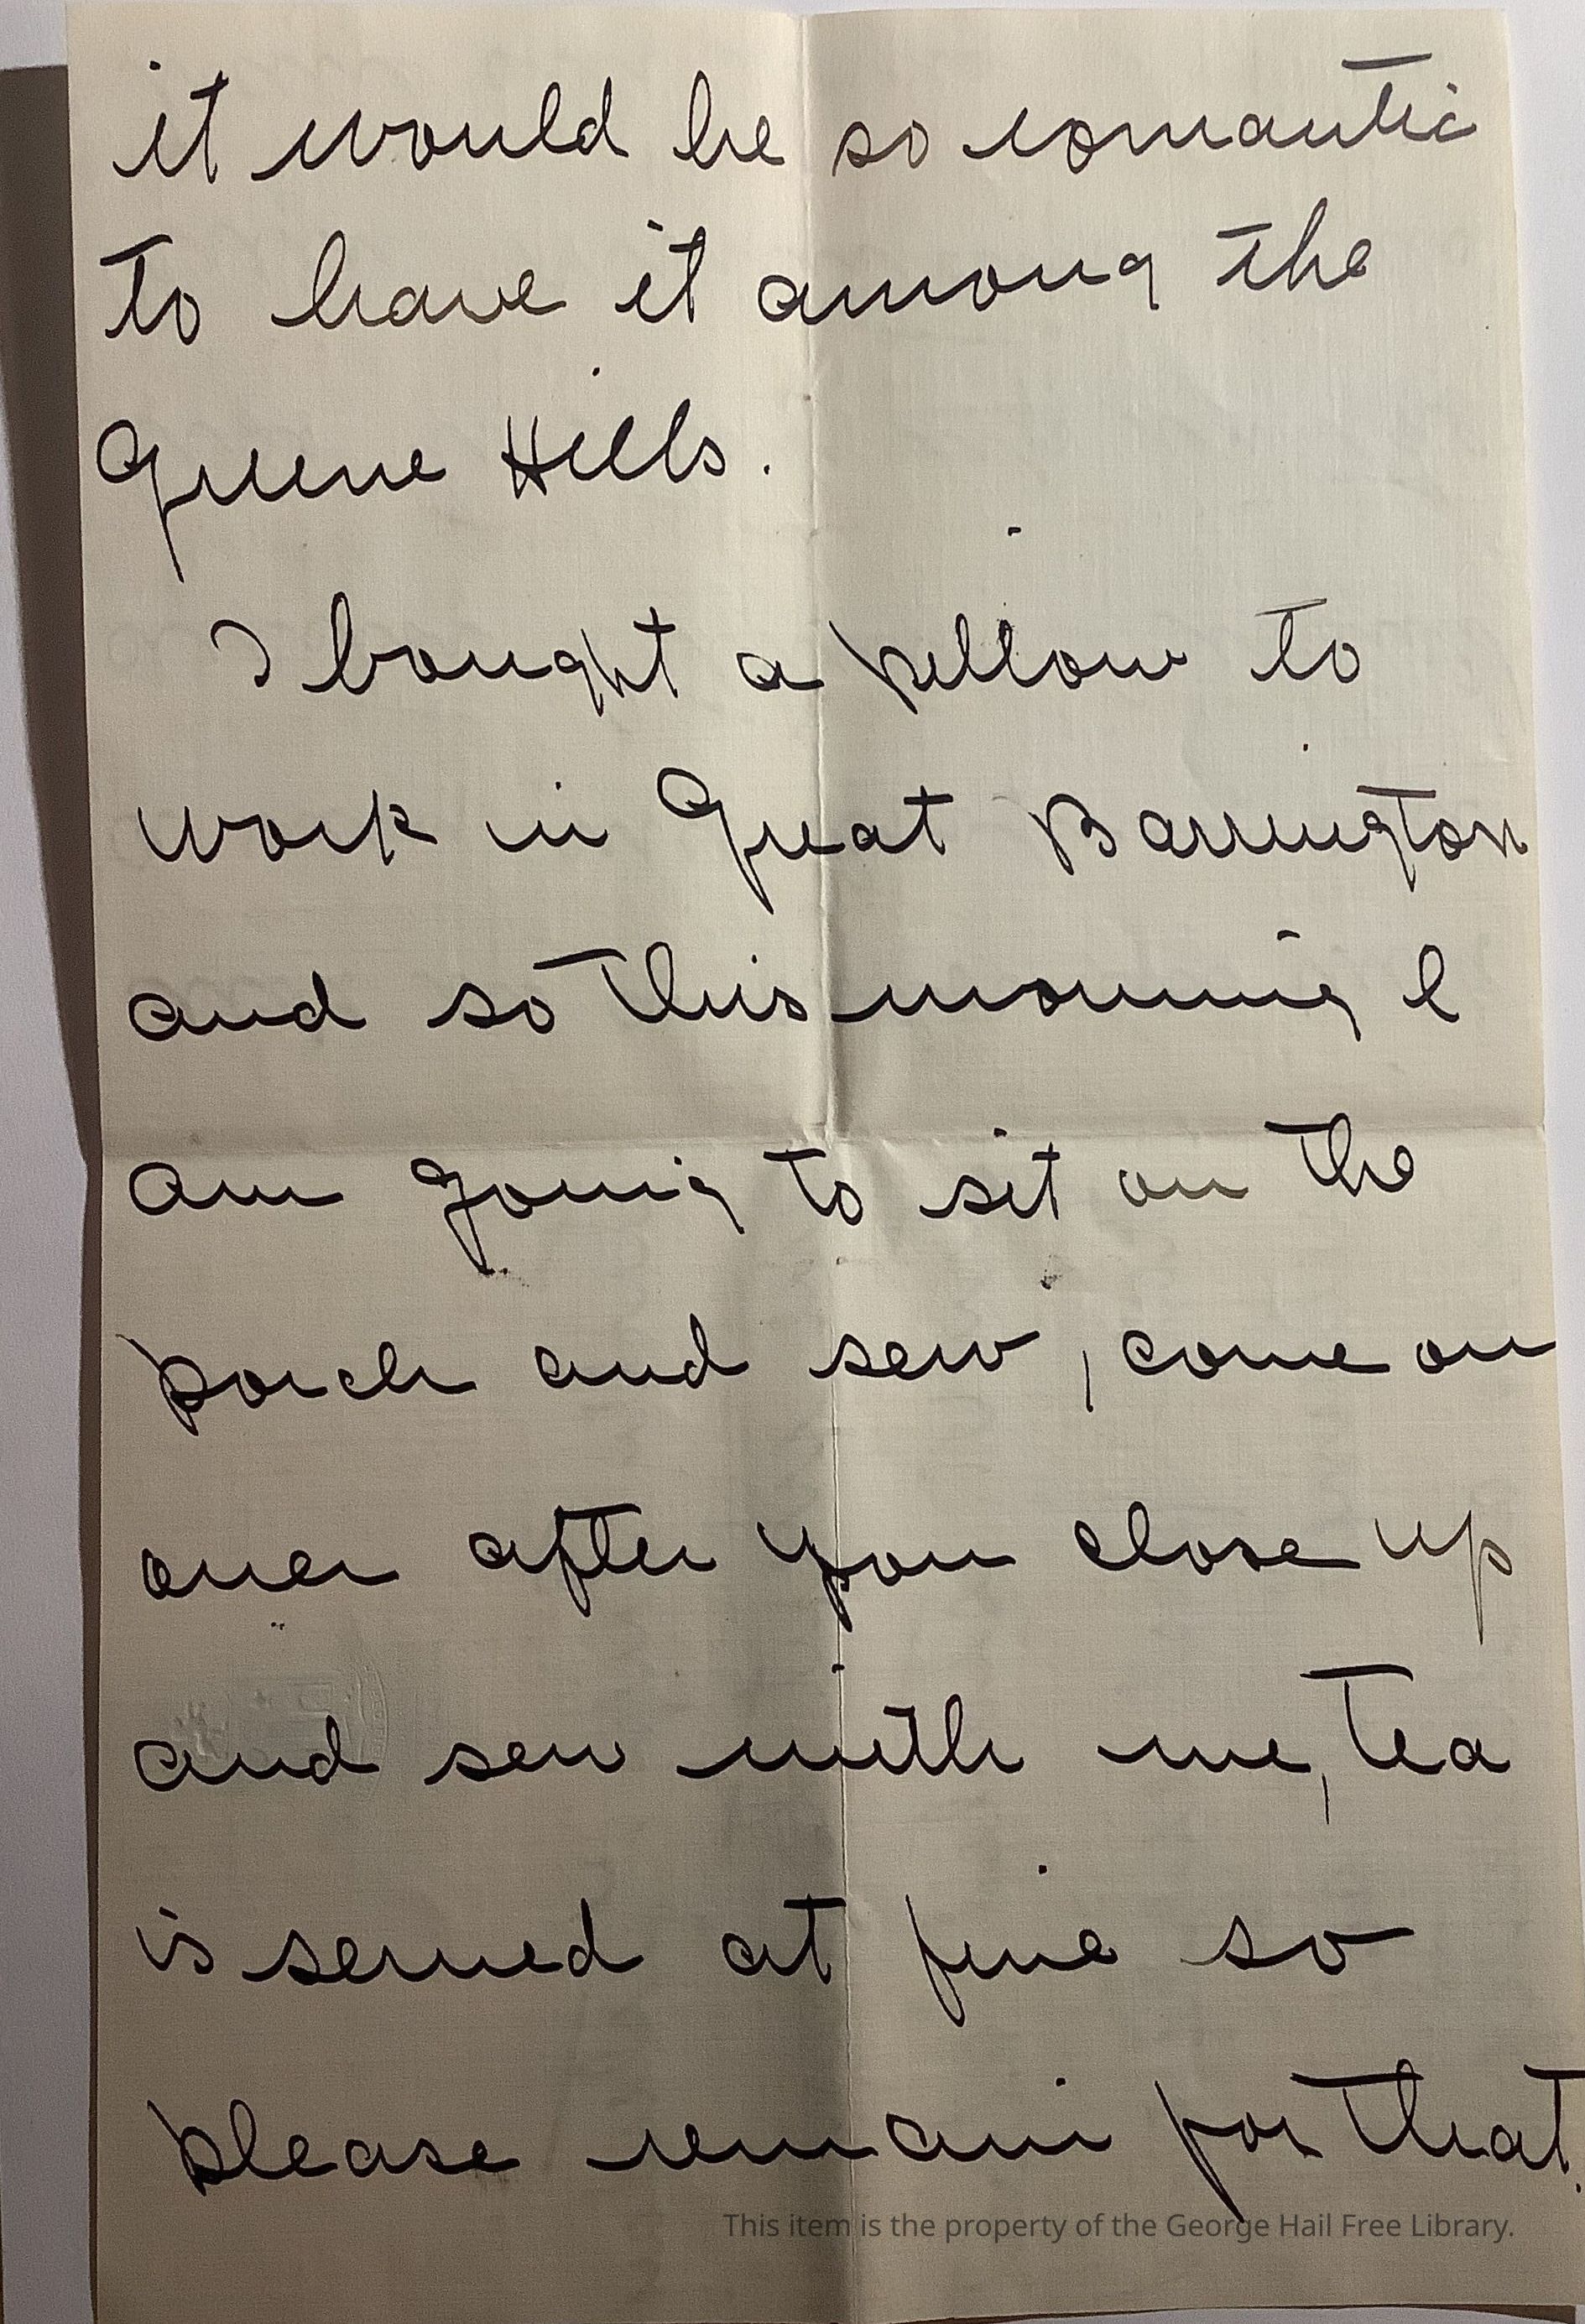 it would be so romantic
to have it among the
Greene Hills.
I bought a pillow to
work in Great Barrington
and so this morning I
am going to sit on the
porch and sew, come on
over after you close up
and sew with me, tea
is served at five so
please remain for that.
This item is the property of the George Hail Free Library.